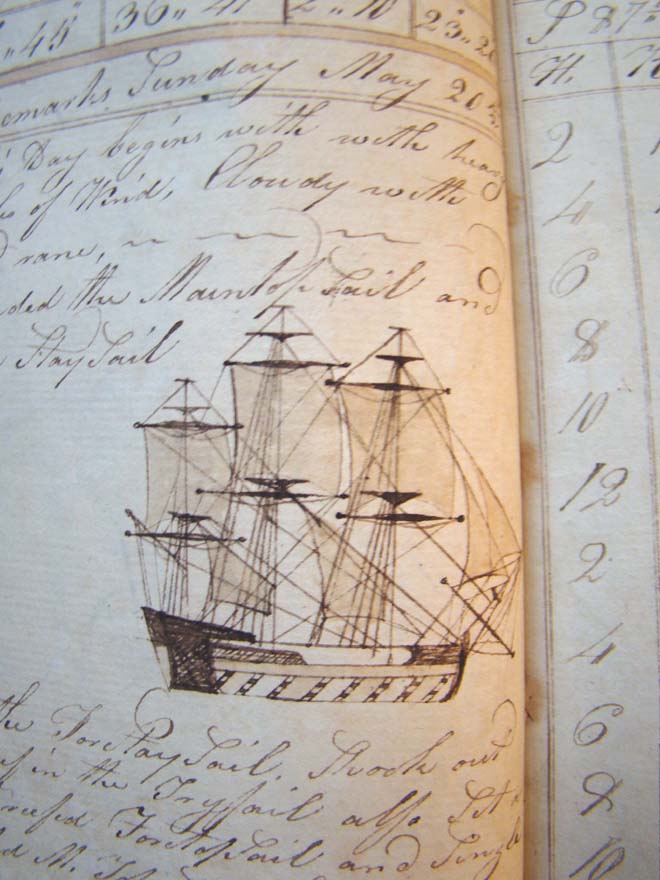 45 36 " 41 2 " 10 23 " 2
emarks Sunday May 20
Day begins with with heav
of Wind, Cloudy with
rane,
ded the Maintopsail and
Staysail
the Forestaysail, Shook out
in the Trysail also Set
reefed Foretopsail and Single
P 87
H. K
2
4
6
8
10
12
2
4
6
8
10